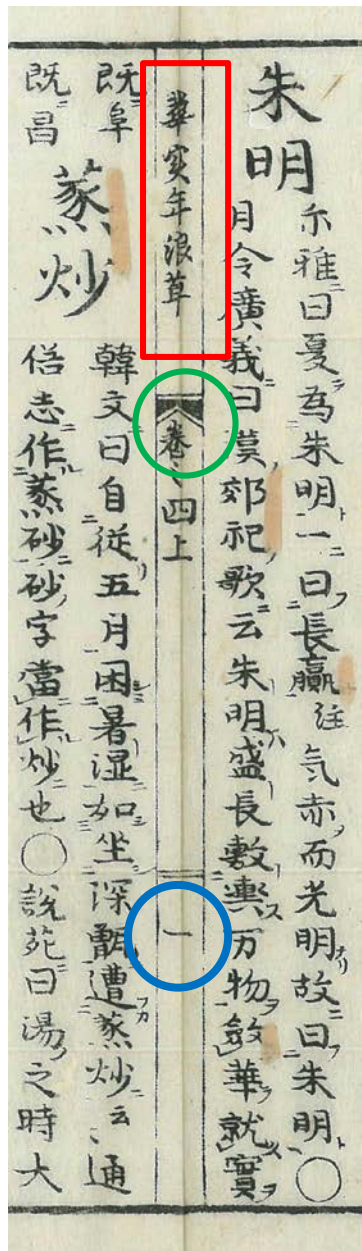 朱明
尓雅曰夏為朱明一曰長贏注気赤而光明故曰朱明〇
月令廣義曰漢郊祀歌云朱明盛長敷與万物敘華就實
華実年浪草 巻之四上 一
既阜
既昌
蒸炒
韓文曰自従五月困暑湿如坐深甑遭蒸炒云〻通
俗志作蒸砂砂字當作炒也〇説苑曰湯之時大